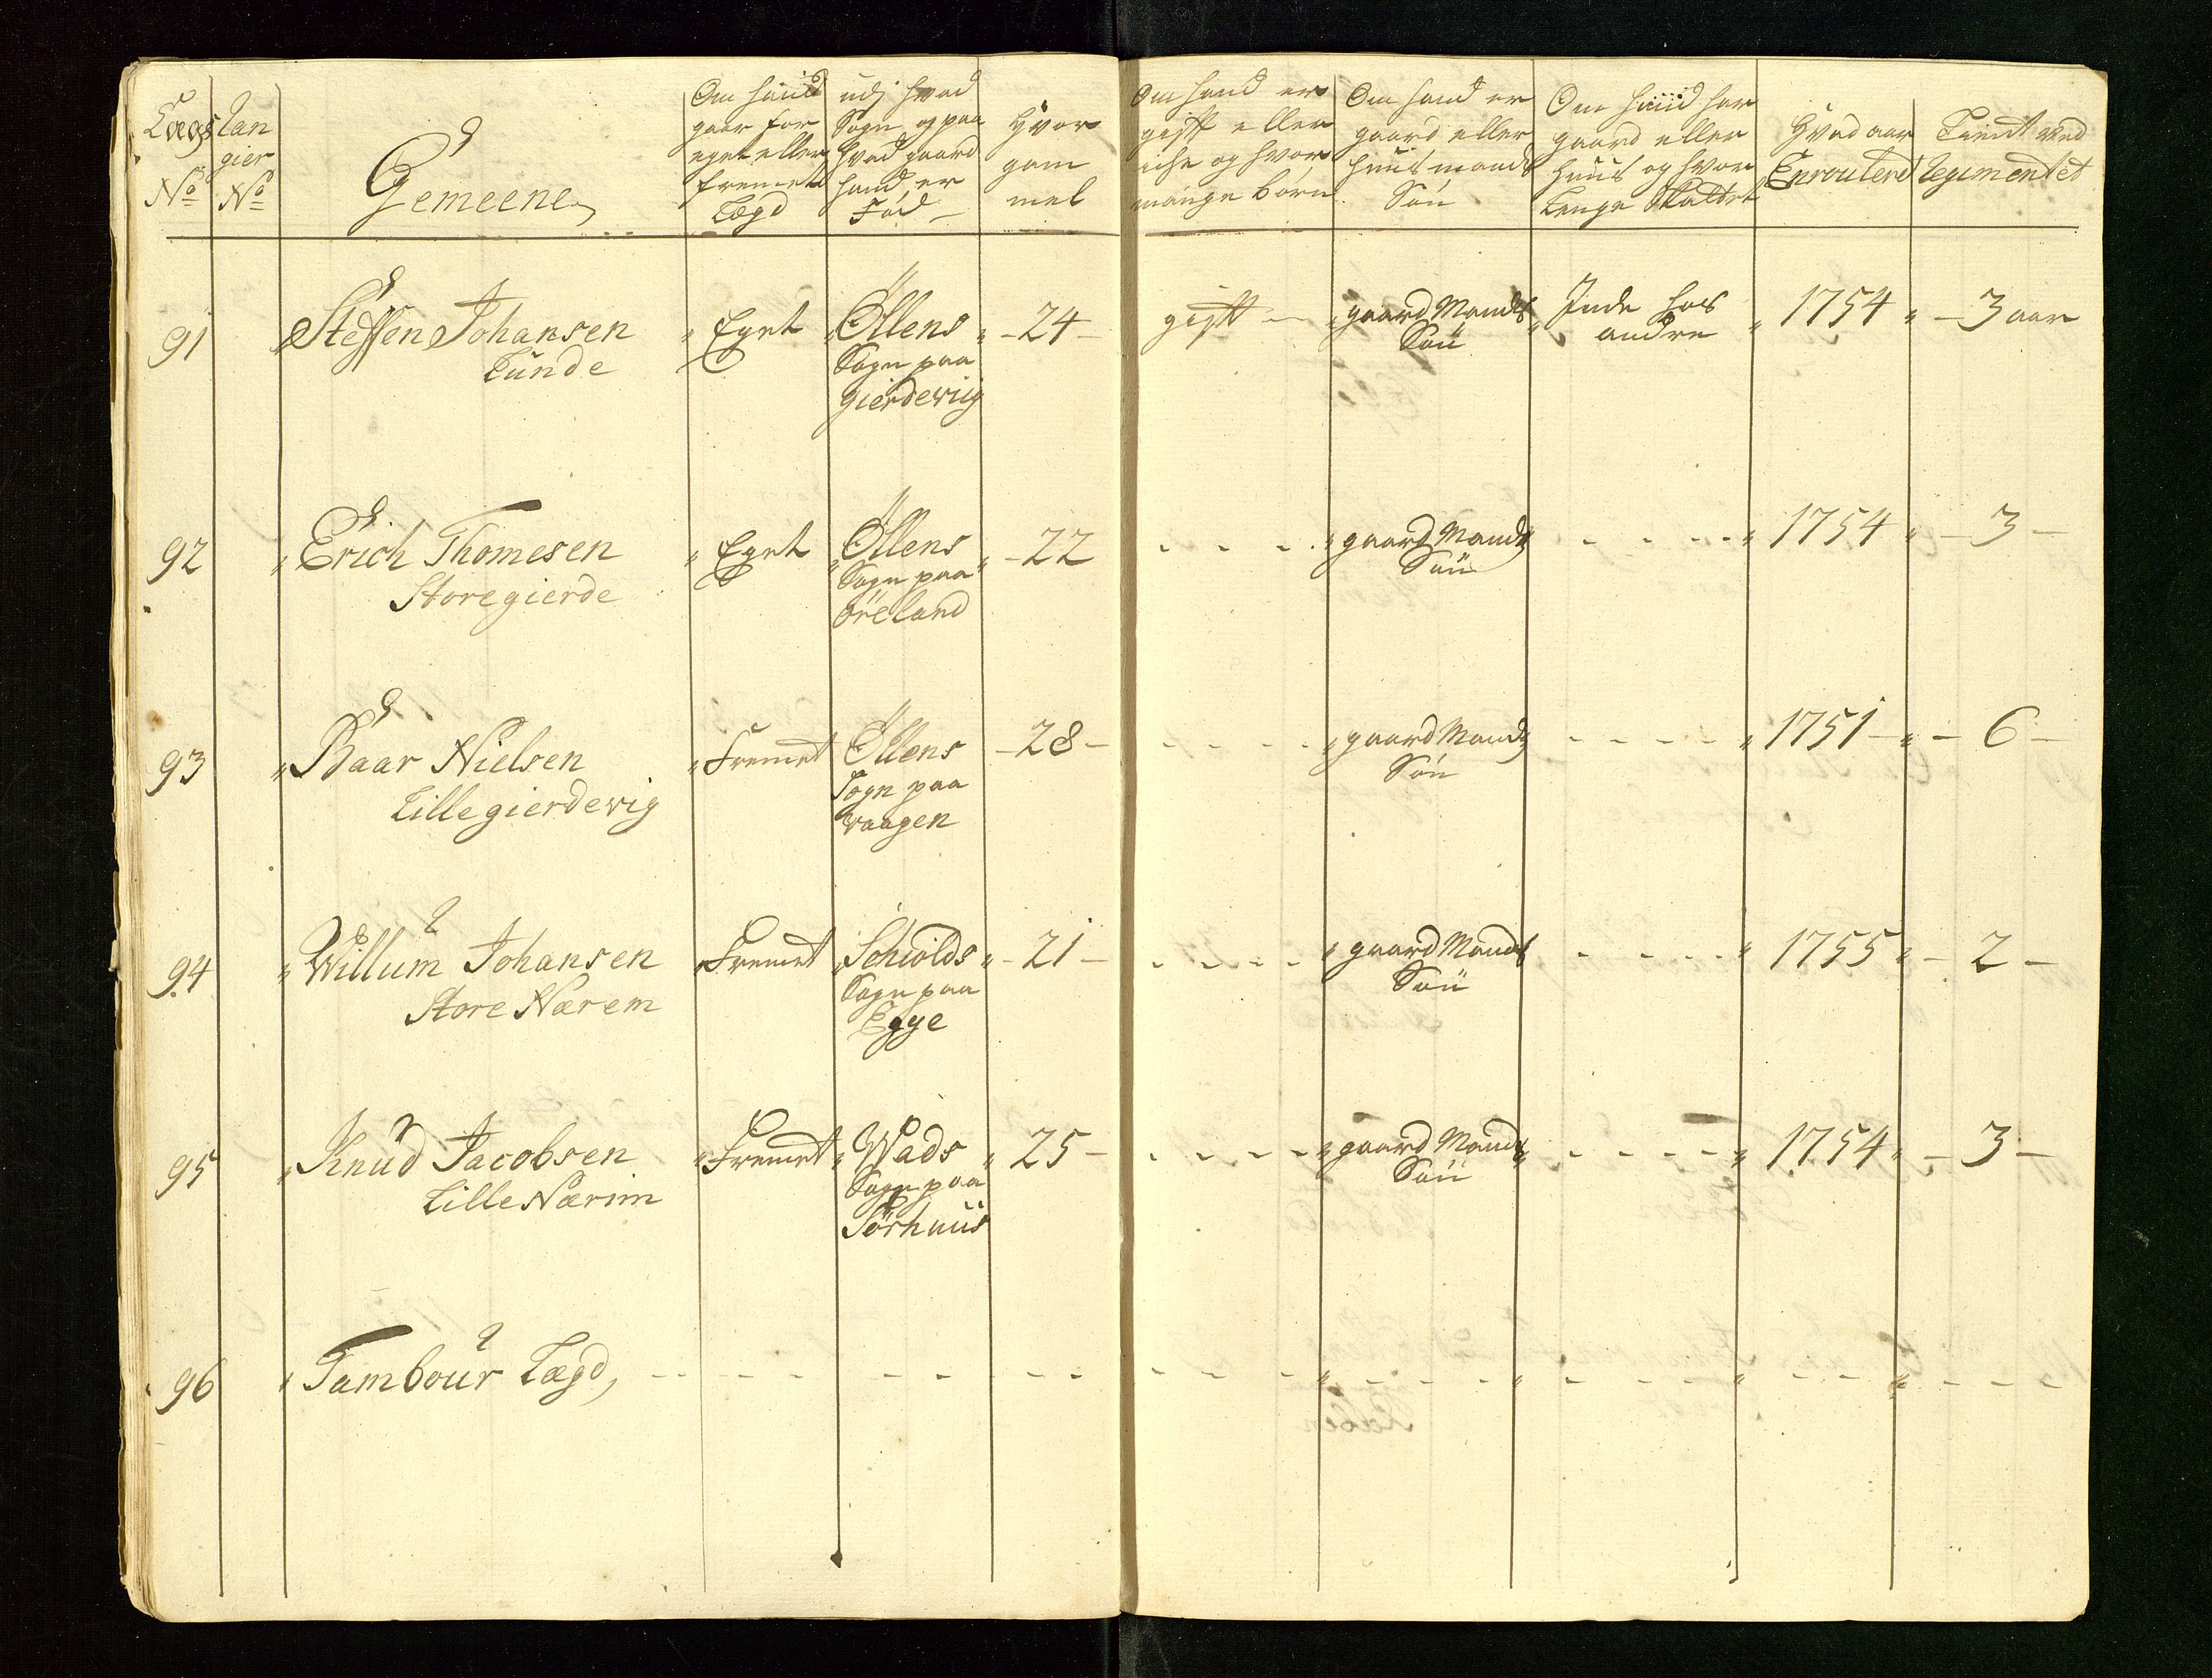 Lægs No
Ran gier No
Gemeene
Om hand gaar for eget eller fremet Lægd
udj hvad Sogn og paa hvad gaard hand er Fød
Hvor gam mel
Om hand er gift eller iche og hvor mange børn
Om hand er gaard eller huusmands Søn
Om hand har gaard eller huus og hvor Lenge
Hvad aar Enroulered
Tient ved Regimentet
91 Steffen Johansen Eget Øllens 24 gift gaard Mands Inde hos 1754 3 aar
Lunde Sogn paa Søn andre
Gierdeviig
92 Erich Thomesen Eget Øllens 22 gaard Mands 1754 3
Storegierde Sogn paa Søn
Øreland
93 Baar Nielsen Fremet Øllens 28 gaard Mands 1751 6
Lillegierdevig Sogn paa Søn
Vaagen
94 Willum Johansen Fremet Schiolds 21 gaard Mands 1755 2
Store Nærem Sogn paa Søn
Egge
95 Knud Jacobsen Fremet Wads 25 gaard Mands 1754 3
Lille Nærim Sogn paa Søn
Sørhuus
96 Tambour Lægd,